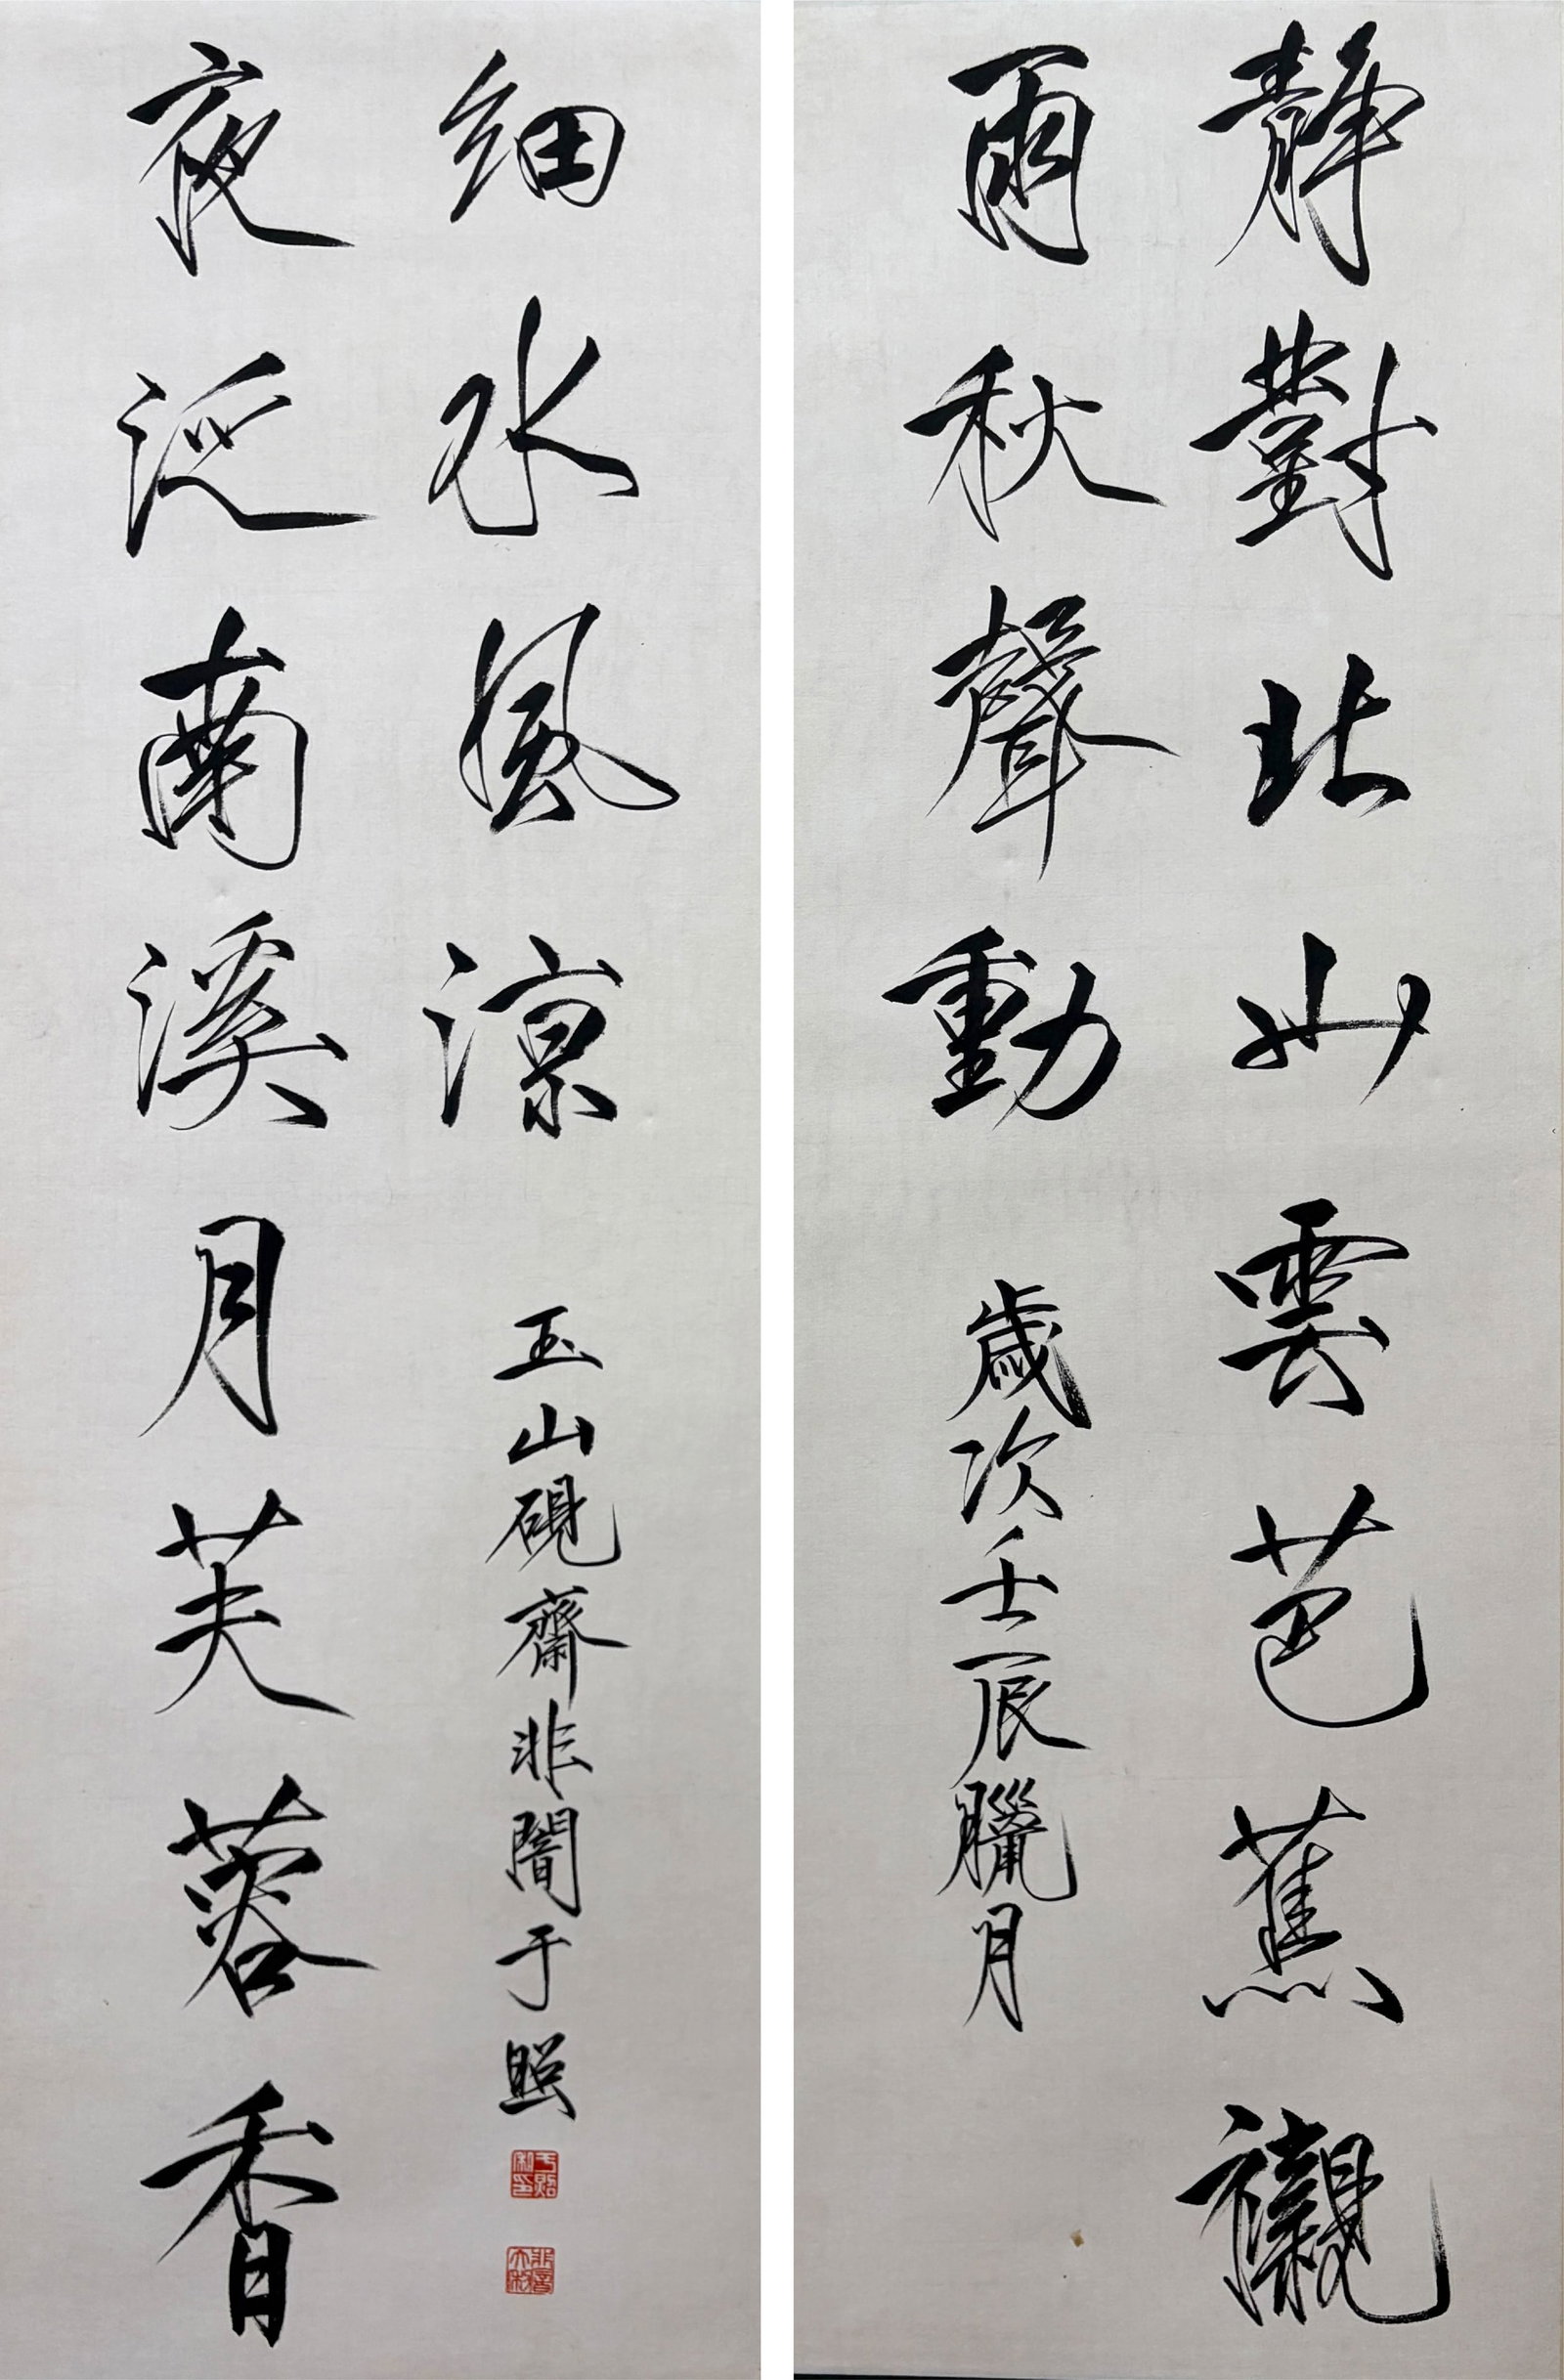 靜對北山雲芭蕉襯
雨秋聲動
歲次壬辰臘月
夜泛南溪月芙蓉香
細水風涼
玉山硯齋非闇于照